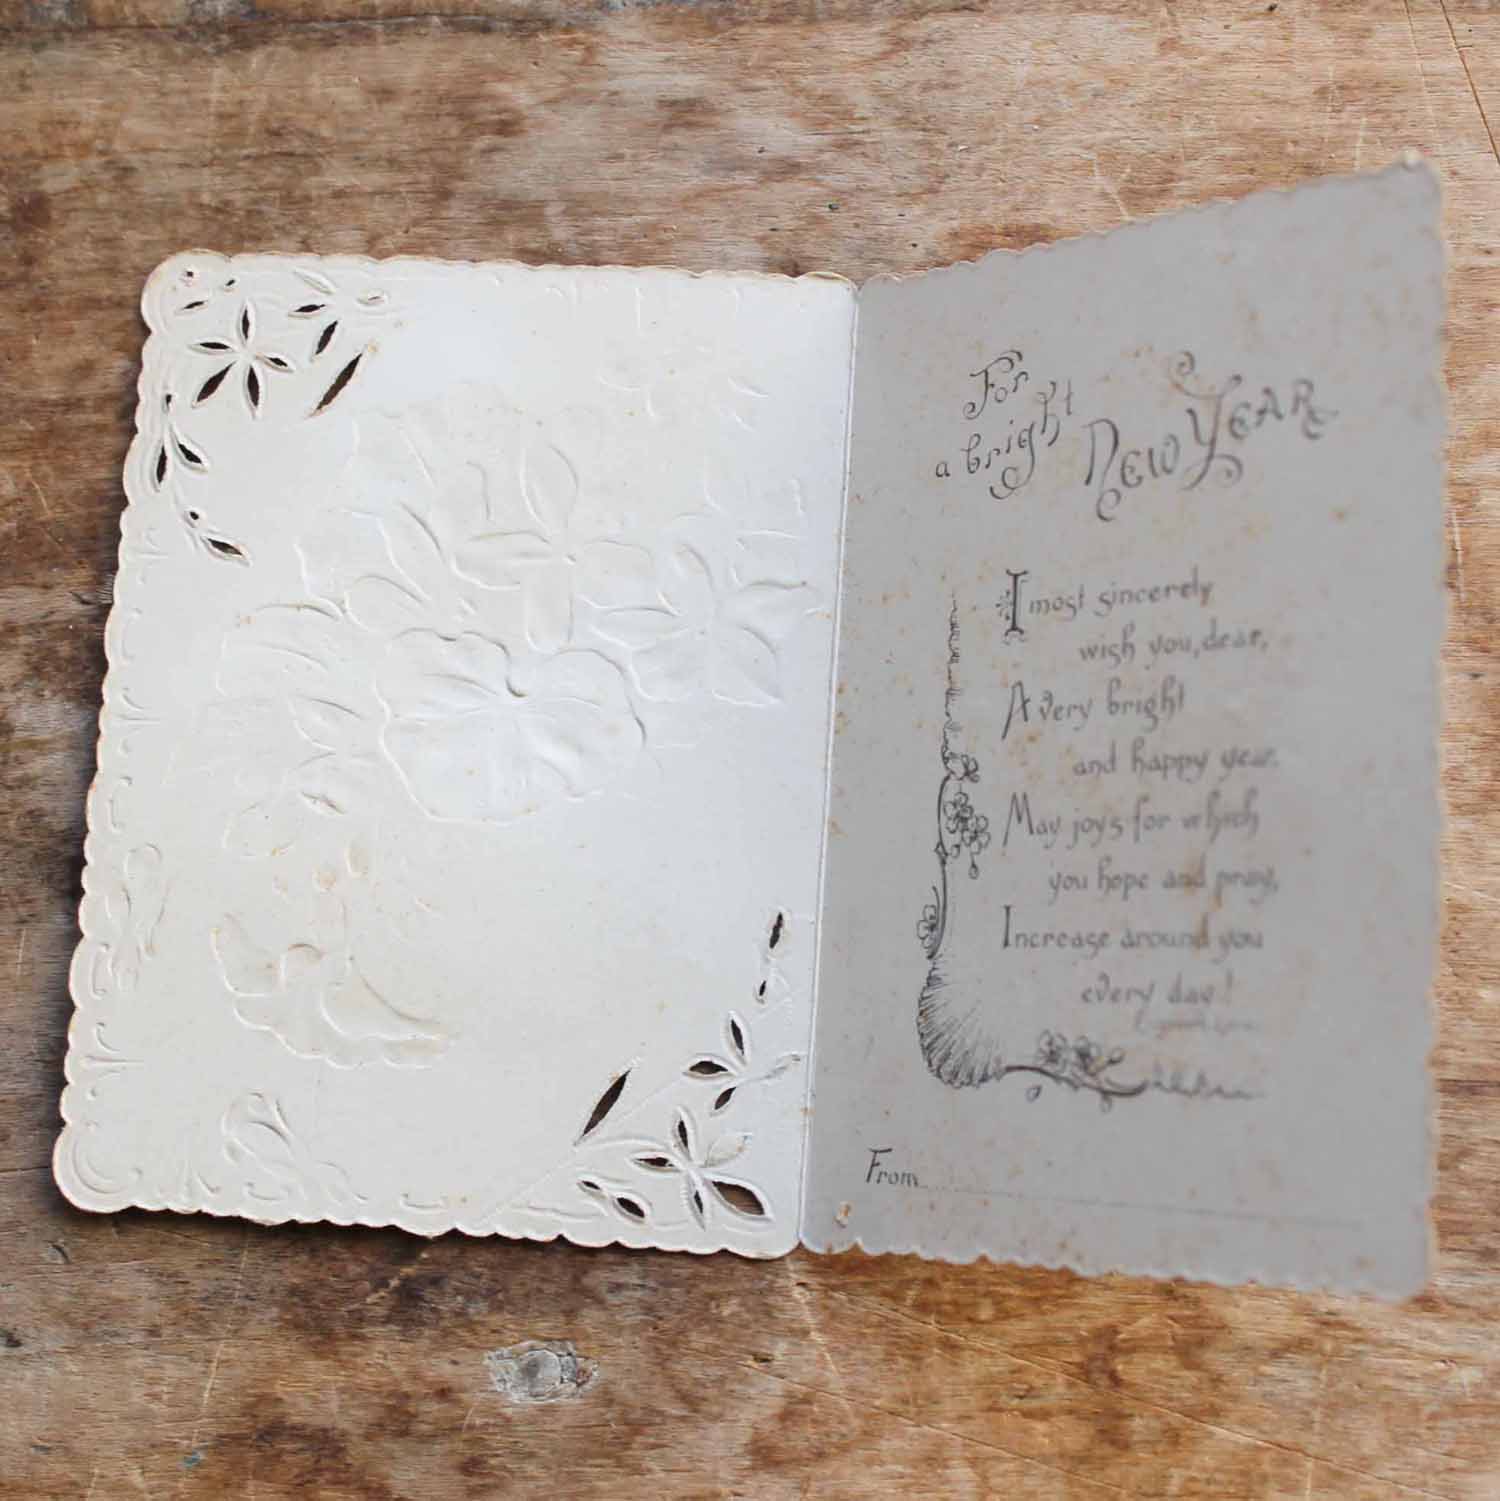 For
a bright New Year
I most sincerely
wish you, dear,
A very bright
and happy year.
May joys for which
you hope and pray,
Increase around you
every day!
From